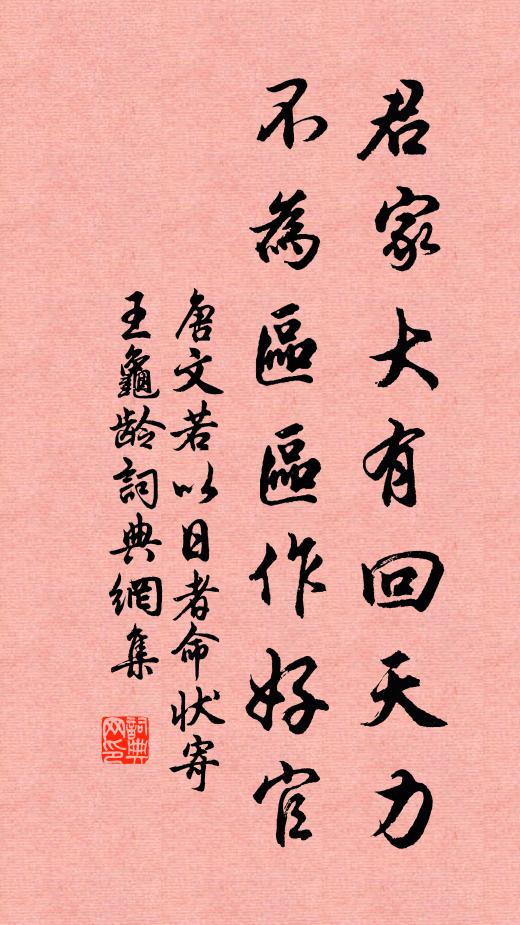 君家大有回天力
不為區區作好官
唐文若以日者命狀寄
王龜齡詞典網集
詞典
网印